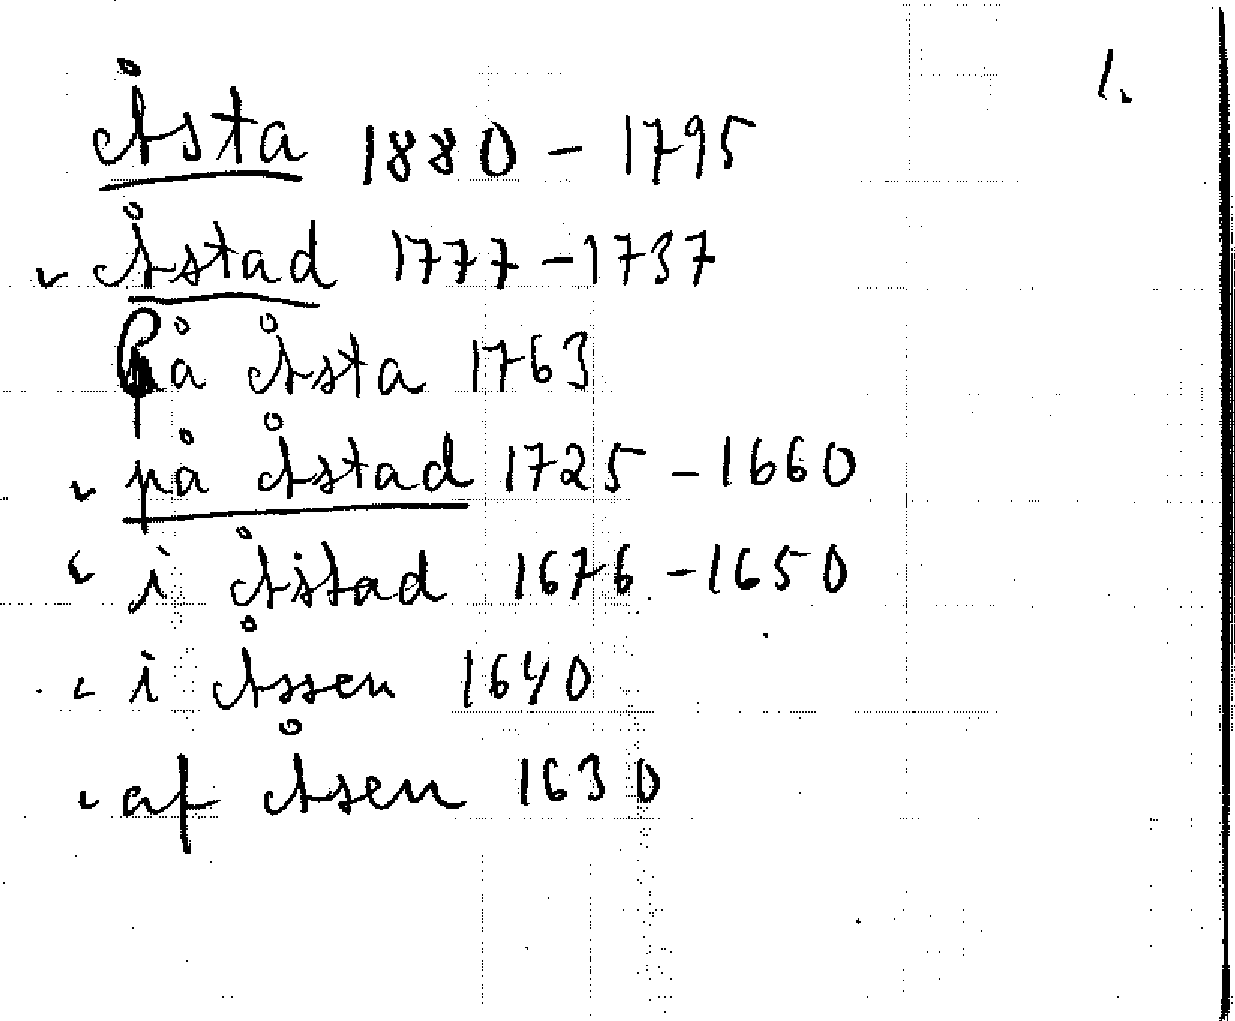 1.
Åsta 1880 - 1795
Åstad 1777 - 1737
På Åsta 1763
på Åstad 1725 - 1660
i Åstad 1676 - 1650
i Åssen 1640
af Åsen 1630